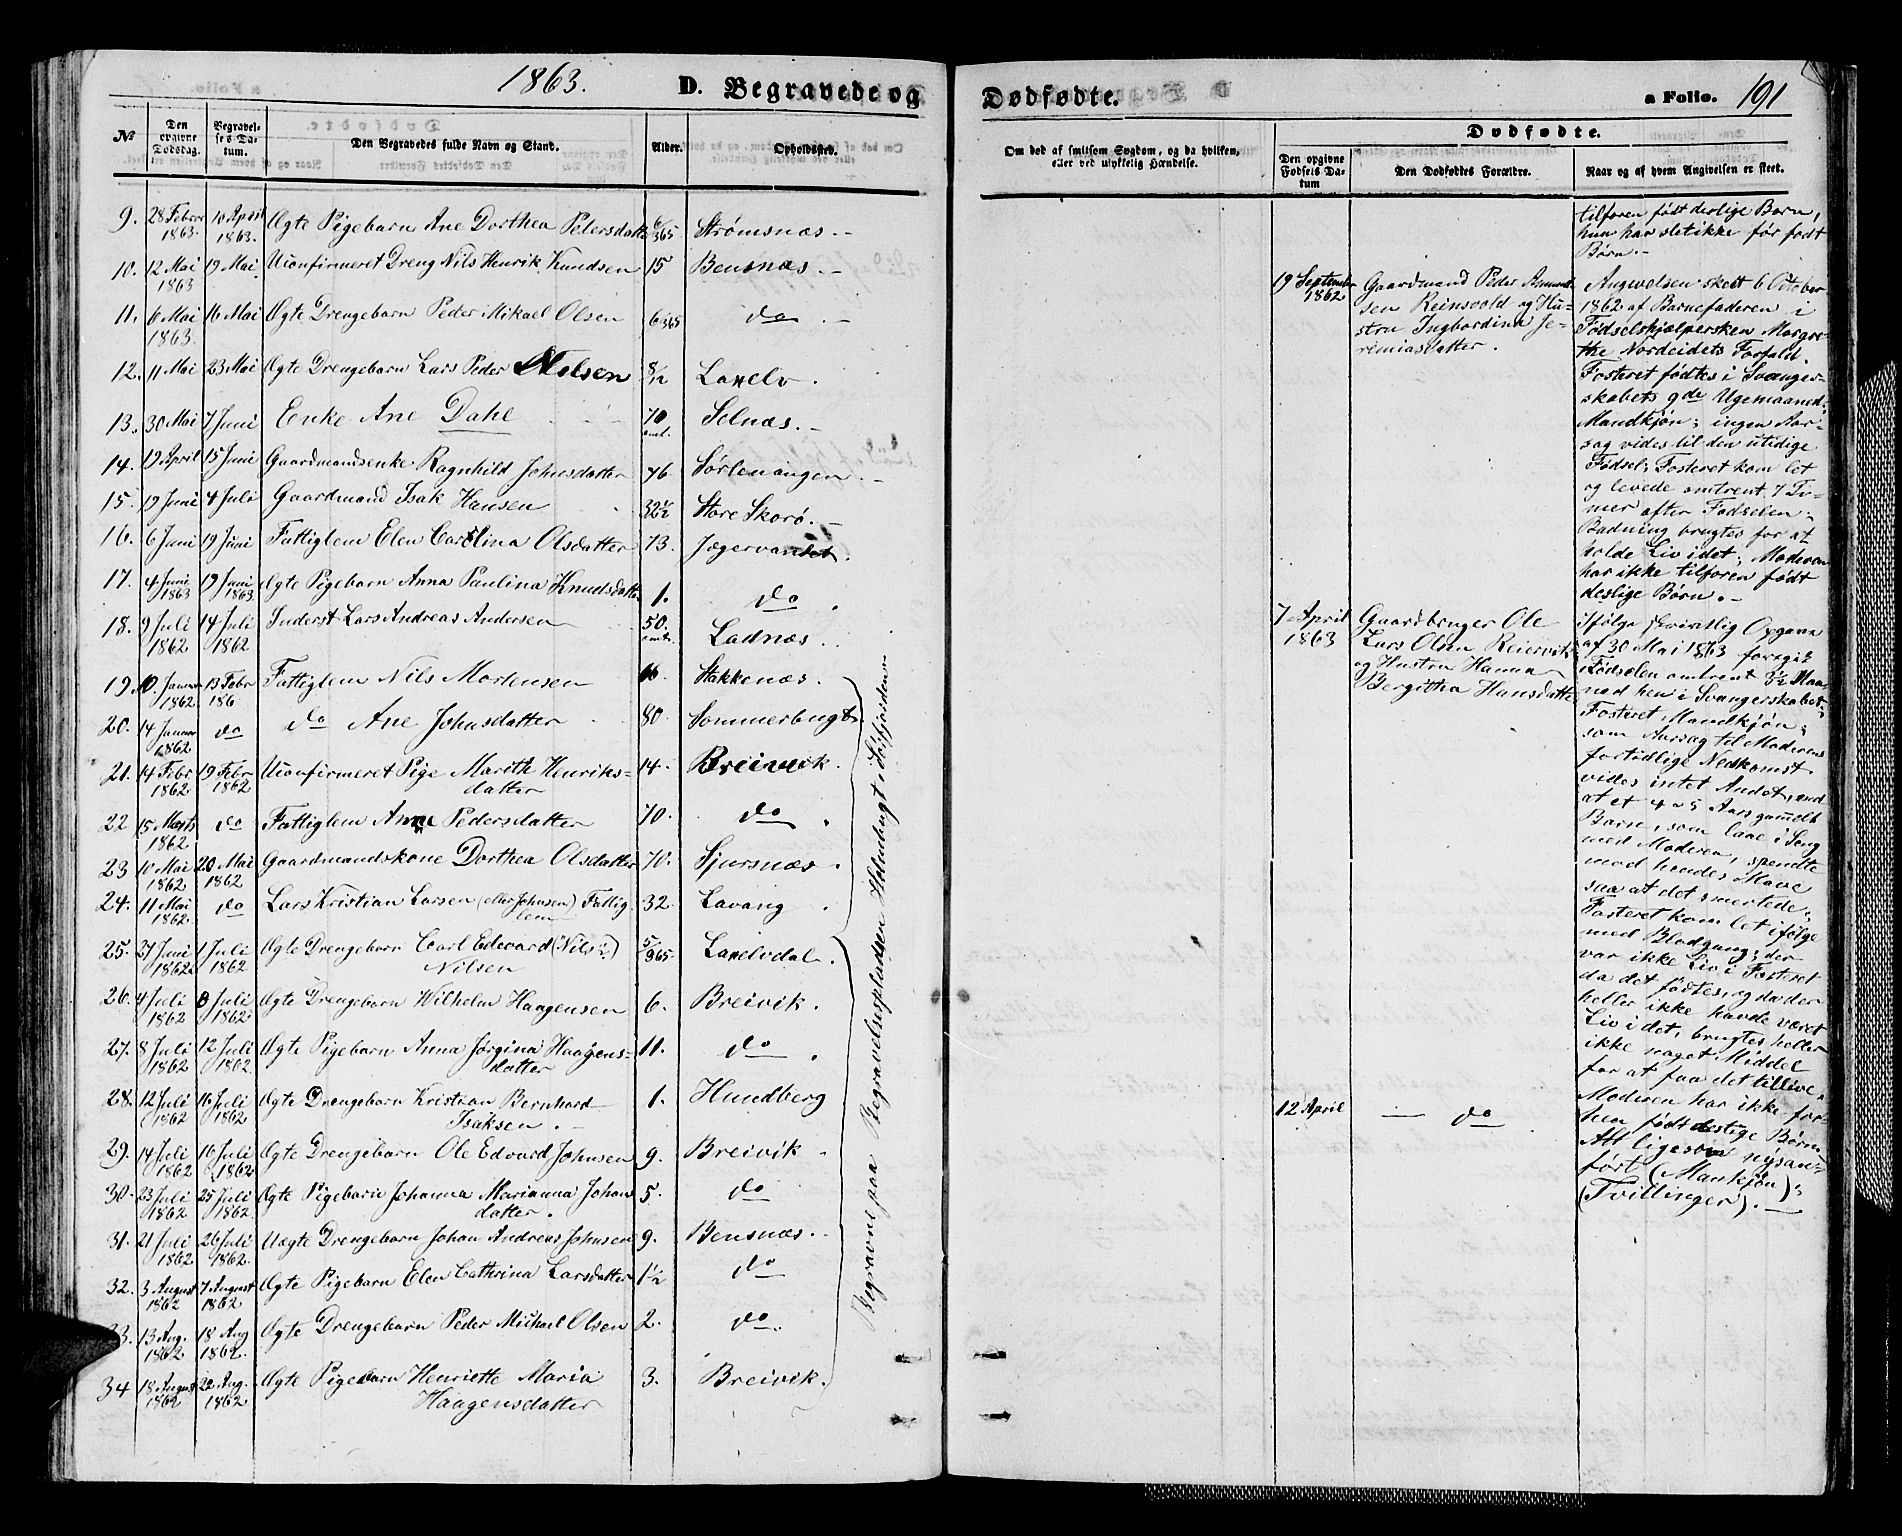 1863. D. Begravede og
№ Den opgivne Dødsdag. Begravelses Datum. Den Begravedes fulde Navn og Stand. Alder. Opholdssted.
9. 28 Febr 1863. 10 April 1863. Ægte Pigebarn Ane Dorthea Petersdatt 6/365 Strømsnæs. -
10. 12 Mai 1863 19 Mai Uconfirmeret Dreng Nils Henrik Knudsen 15 Bensnæs. -
11. 6 Mai 1863. 16 Mai Ægte Drengebarn Peder Mikael Olsen 6/365 do -
12. 11 Mai 23 Mai Ægte Drengebarn Lars Peder Nilsen 8/12 Laxelv.
13. 30 Mai 7 Juni Enke Ane Dahl 70 omt. Selnæs. -
14. 19 April 15 Juni Gaardmandsenke Ragnhild Johnsdatter 76 Sørlenangen. -
15. 19 Juni 4 Juli Gaardmand Isak Hansen 32½ Store Skorø. -
16. 6 Juni 19 Juni Fattiglem Elen Carolina Olsdatter 73. Jægervandet.
17. 4 Juni 1863 19 Juni 1863 Ægte Pigebarn Anna Paulina Knudsdatt 1. do.
18. 9 Juli 1862 14 Juli 1862 Inderst Lars Andreas Andersen 50. omt. Ladnæs.
19. 10. Januar 1862. 13 Febr 186 Fattiglem Nils Mortensen Stakkenæs.
20. 14 Januar 1862 do do Ane Johnsdatter 80. Sommerbugt.
21. 14 Febr 1862 19 Febr 1862 Uconfirmeret Pige Marith Henriks- 14. Breivik.
datter
22 15 Marts 1862 do Fattiglem Anne Pedersdatter 70. do.
23 10 Mai 1862 20 Mai 1862 Gaardmandskone Dorthea Olsdatter 70. Sjursnæs.
24. 11 Mai 1862. do Lars Kristian Larsen (eller Johnsen) Fattig- 32. Lavang.
lem
25. 27 Juni 1862. 1 Juli 1862 Ægte Drengebarn Carl Edevard (Nils:) 5/365 Laxelvdal.
Nilsen
26. 4 Juli 1862 8 Juli 1862. Ægte Drengebarn Wilhelm Haagensen 6. Breivik.
27. 8 Juli 1862 12 Juli 1862. Ægte Pigebarn Anna Jørgina Haagens- 11. do.
datter
28. 12 Juli 1862 16 Juli 1862. Ægte Drengebarn Kristian Bernhard 1. Hundberg
Isaksen. -
29. 14 Juli 1862 16 Juli 1862 Ægte Drengebarn Ole Edvard Johnsen 9. Breivik.
30. 23 Juli 1862 25 Juli 1862 Ægte Pigebarn Johanna Marianna Johan 5. do
datter.
31. 21 Juli 1862 26 Juli 1862. Uægte Drengebarn Johan Andreas Johnsen 9. Bensnæs. -
32. 3 August 1862 7 August 1862 Ægte Pigebarn Elen Cathrina Larsdatter 1½ do
33. 13 Aug. 1862 18 Aug 1862. Ægte Drengebarn Peder Michael Olsen 2. do.
34 18 August 1862 22 Aug. 1862 Ægte Pigebarn Henriette Maria 3. Breivik.
Haagensdatter
Begravne paa Begravelsespladsen Holmbugt i Sørfjorden
Dødfødte. a Folio. 191
Om død af smitsom Sygdom, og da hvilken, eller ved ulykkelig Hændelse.
Dødfødte.
Den opgivne Fødsels Datum Den Dødfødtes Forældre. Naar og af hvem Angivelsen er skeet.
tilforen født deslige Børn,
hun har slet ikke før født
Børn. -
19 September 1862 Gaardmand Peder Amund-
sen Reinsvold og Hu-
stru Ingbordina Je-
remiasdatter.
Angivelsen skett 6 October
1862 af Barnefaderen i
Fødselshjælpersken Margre-
the Nordeidets Forfald.
Fosteret fødtes i Svanger-
skabets 9de Ugemaaned;
Mandkjøn; ingen Aar-
sag vides til den utidige
Fødsel; Fosteret kom let
og levede omtrent 7 Ti-
mer efter Fødselen;
Badning brugtes for at
holde Liv i det; Moderen
har ikke tilforen født
deslige Børn. -
7 April 1863 Gaardbruger Ole
Lars Olsen Reiervik
og Hustru Hanna
Bergitha Hansdatter
Ifølge skriftlig Opgave
af 30 Mai 1863 foregik
Fødselen omtrent 3½ Maa-
ned hen i Svangerskabet;
Fosteret Mandkjøn;
som Aarsag til Moderens
fortidlige Nedkomst
vides intet Andet, end
at et 4 a 5 Aars gammelt
Barn, som laae i Seng
med Moderen, spendte
mod hendes Mave
saa at det smertede;
Fosteret kom let ifølge
med Blodgang; der
var ikke Liv i Fosteret
da det fødtes, og da der
heller ikke havde været
Liv i det, brugtes heller
ikke noget Middel
for at faa det tillive.
Moderen har ikke for-
hen født deslige Børn
12 April — do
Alt ligesom nysan-
ført (Mankjøn);
(Tvillinger). -